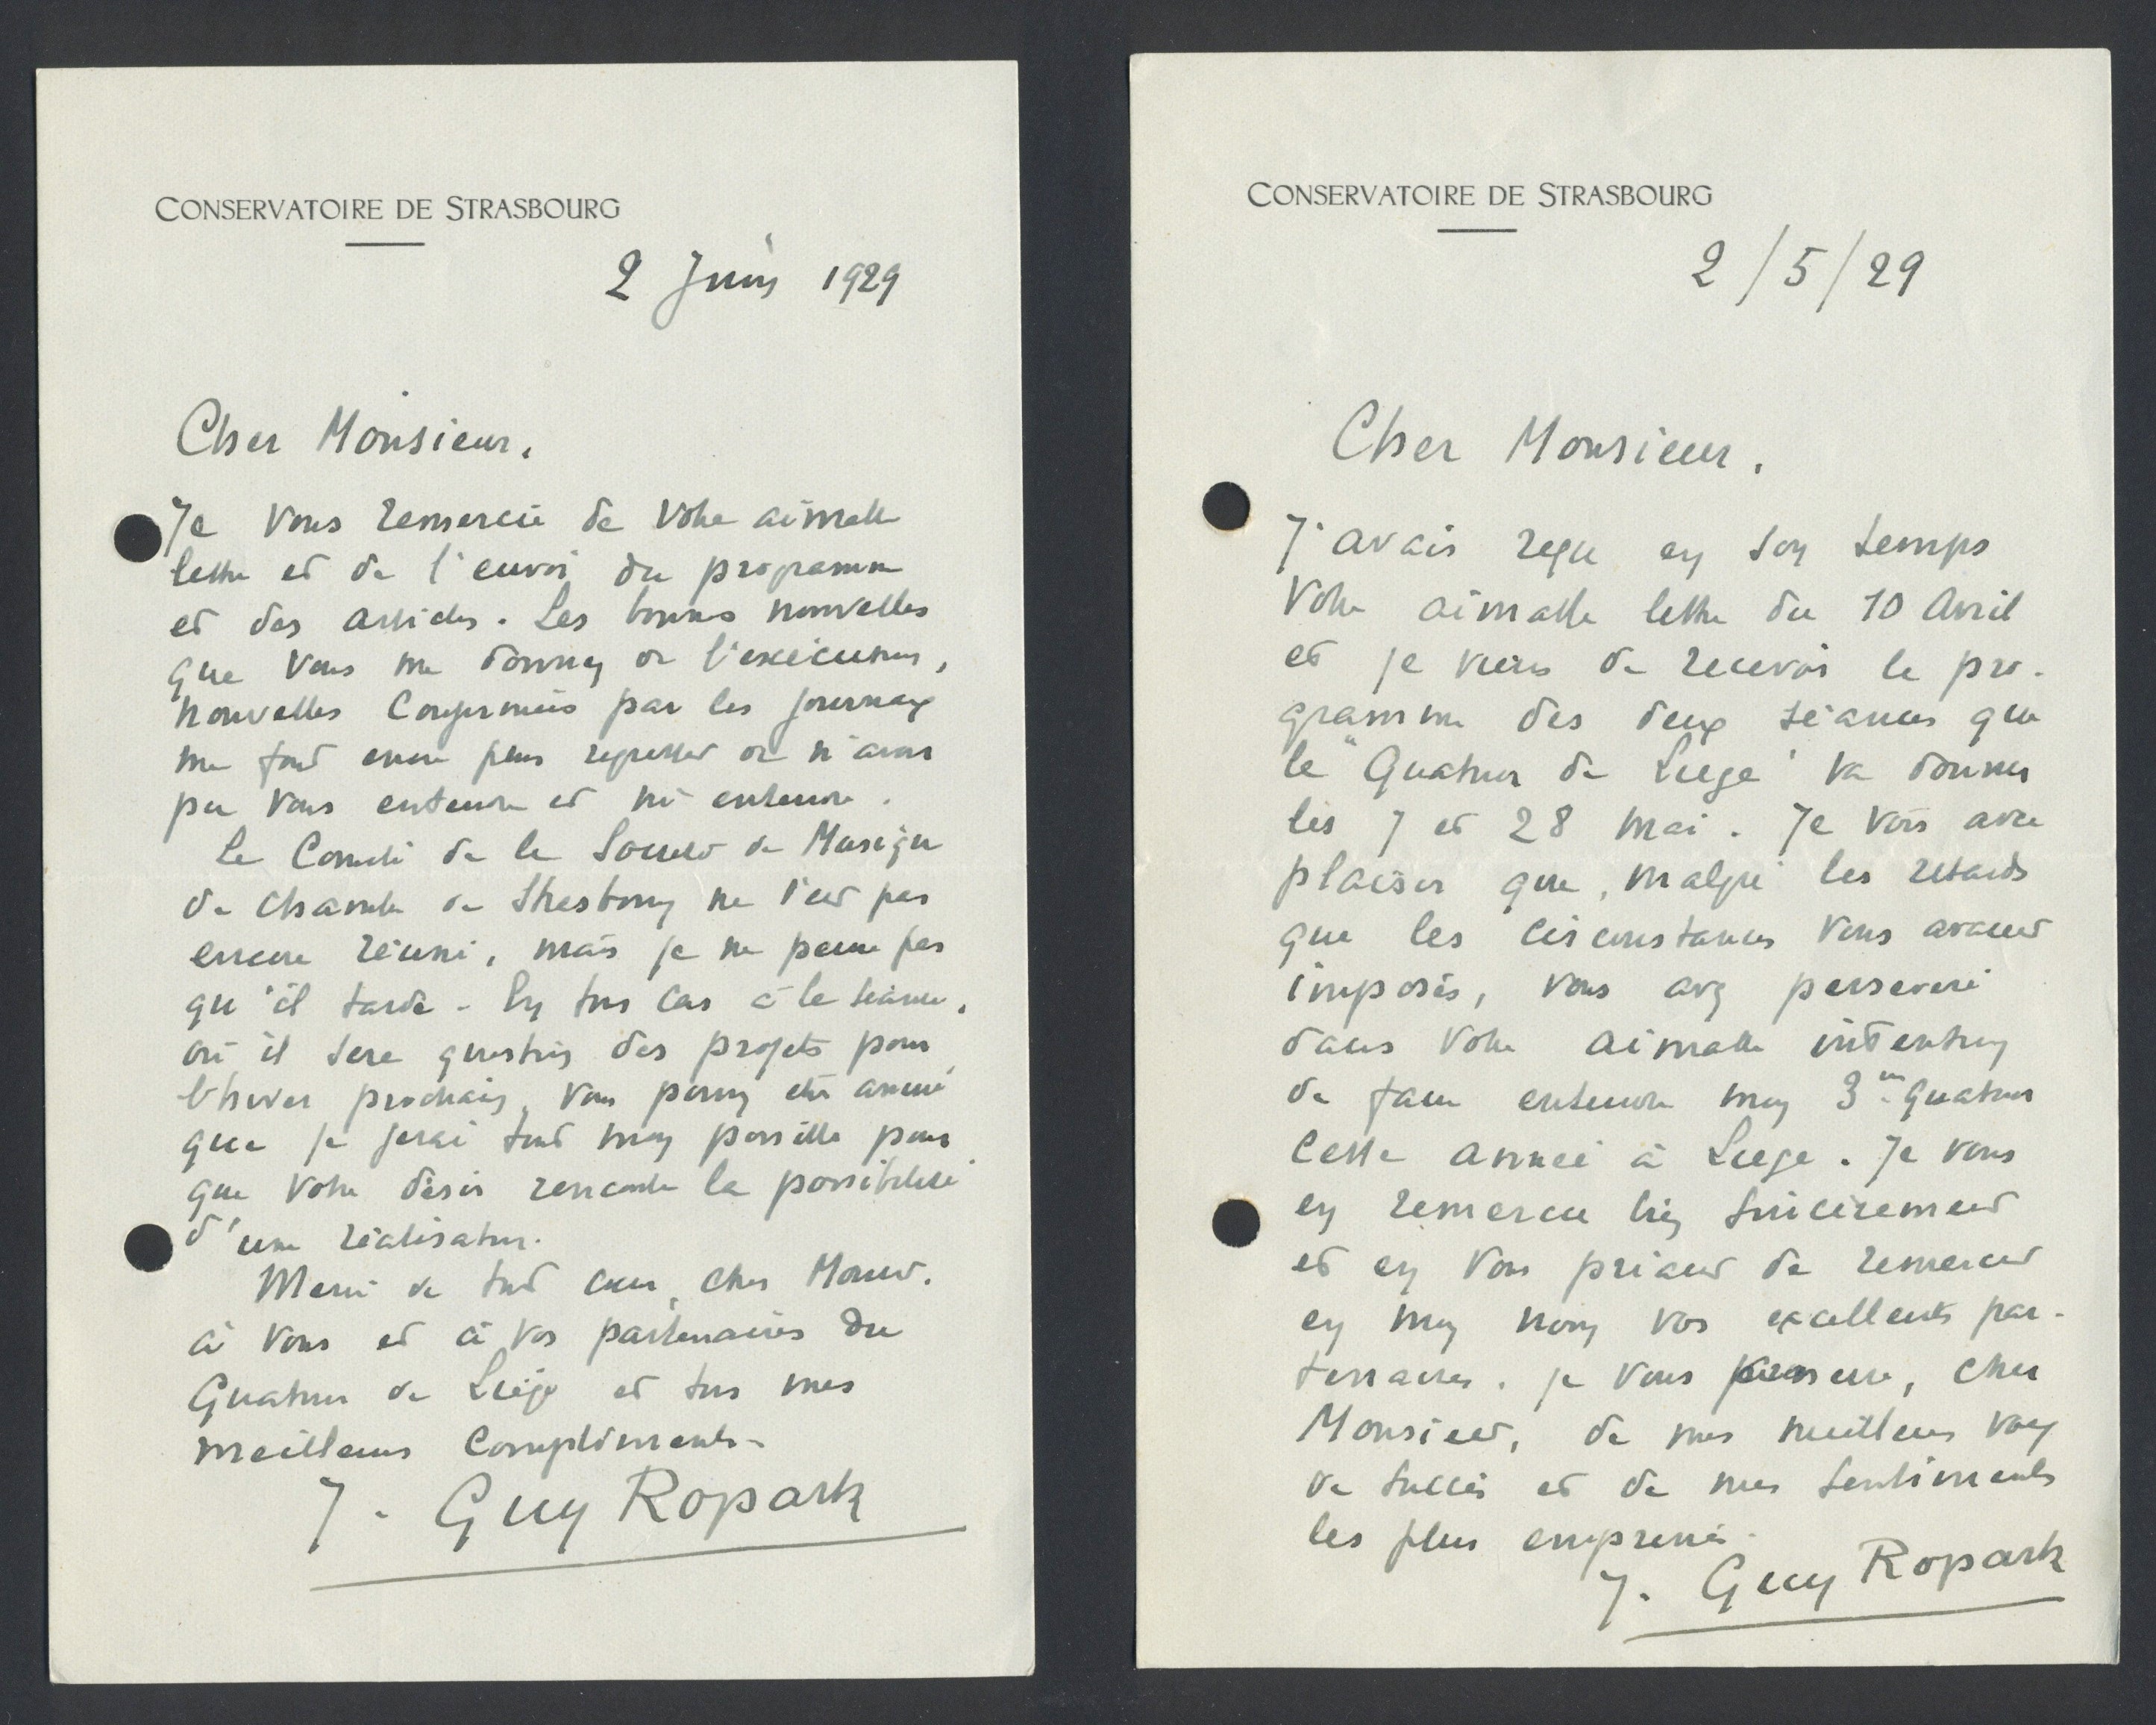 CONSERVATOIRE DE STRASBOURG
2 Juin 1929
Cher Monsieur,
Je vous remercie de votre aimable
lettre et de l'envoi du programme
et des articles. Les bonnes nouvelles
que vous me donnez de l'exécution,
nouvelles confirmées par les journaux
me font encore plus regretter de n'avoir
pu vous entendre et m'entendre.
Le Comité de la Société de Musique
de Chambre de Strasbourg ne s'est pas
encore réuni, mais je ne pense pas
qu'il tarde. En tous cas à la séance,
où il sera question des projets pour
l'hiver prochain, vous pouvez être assuré
que je ferai tout mon possible pour
que votre désir rencontre la possibilité
d'une réalisation.
Merci de tout cœur, cher Monsieur,
à vous et à vos partenaires du
Quatuor de Liège et tous mes
meilleurs compliments.
J. Guy Ropartz
CONSERVATOIRE DE STRASBOURG
2/5/29
Cher Monsieur,
J'avais reçu en son temps
votre aimable lettre du 10 Avril
et je viens de recevoir le pro-
gramme des deux séances que
le "Quatuor de Liège" va donner
les 7 et 28 mai. Je vois avec
plaisir que, malgré les retards
que les circonstances vous avaient
imposés, vous avez persévéré
dans votre aimable intention
de faire entendre mon 3me Quatuor
cette année à Liège. Je vous
en remercie bien sincèrement
et en vous priant de remercier
en mon nom vos excellents par-
tenaires, je vous, cher
Monsieur, de mes meilleurs vœux
de succès et de mes sentiments
les plus empressés.
J. Guy Ropartz